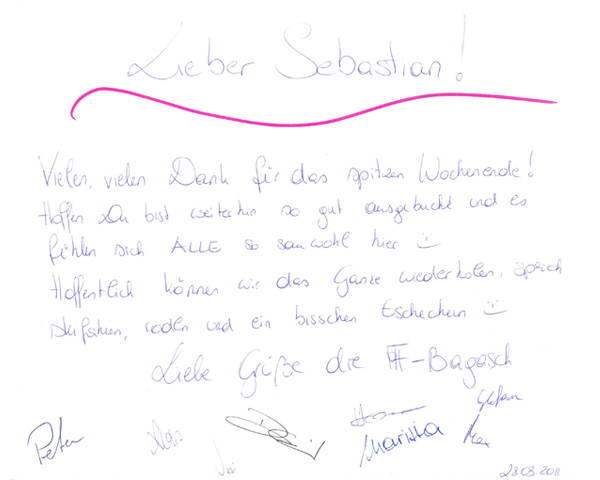 Lieber Sebastian!
Vielen, vielen Dank für das spitzen Wochenende!
Hoffen Du bist weiterhin so gut ausgebucht und es
fühlen sich ALLE so sauwohl hier ☺
Hoffentlich können wir das Ganze wiederholen, sprich
skifahren, rodeln und ein bisschen tschechern ☺
Liebe Grüße die FF-Bagasch
Stefan
Peter Mariska Max
28.03.2011